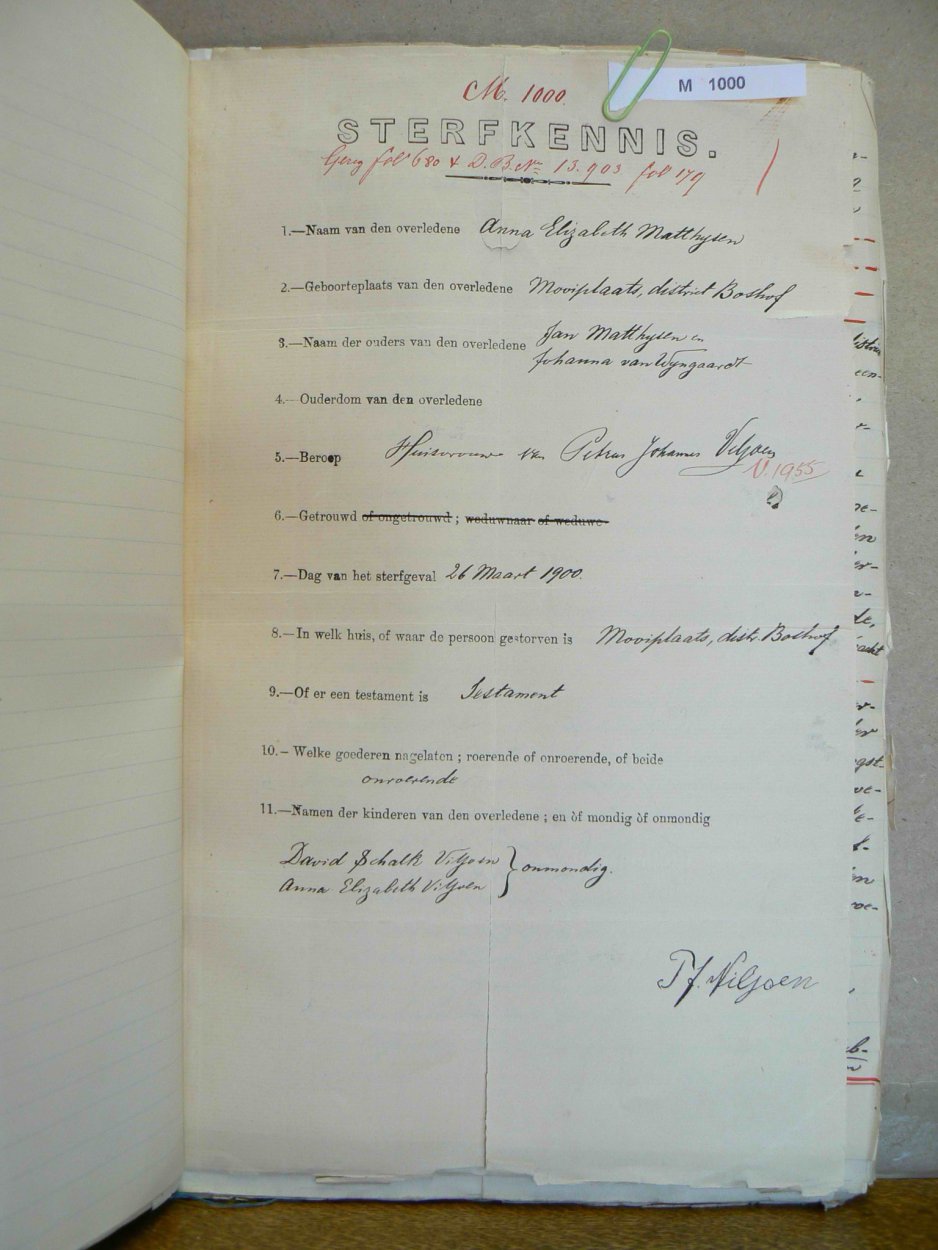 M. 1000.
M 1000
STERFKENNIS.
Gereg fol 680 & D.B. No 13.903 fol 179
1.—Naam van den overledene Anna Elizabeth Matthysen
2.—Geboorteplaats van den overledene Mooiplaats, district Boshof
3.—Naam der ouders van den overledene Jan Matthysen en
Johanna van Wyngaardt
4.—Ouderdom van den overledene
5.—Beroep Huisvrouw van Petrus Johannes Viljoen
V. 1955
6.—Getrouwd of ongetrouwd ; weduwnaar of weduwe
7.—Dag van het sterfgeval 26 Maart 1900.
8.—In welk huis, of waar de persoon gestorven is Mooiplaats, distr. Boshof
9.—Of er een testament is Testament
10.—Welke goederen nagelaten ; roerende of onroerende, of beide
onroerende
11.—Namen der kinderen van den overledene ; en òf mondig òf onmondig
David Schalk Viljoen
Anna Elizabeth Viljoen } onmondig.
P J. Viljoen